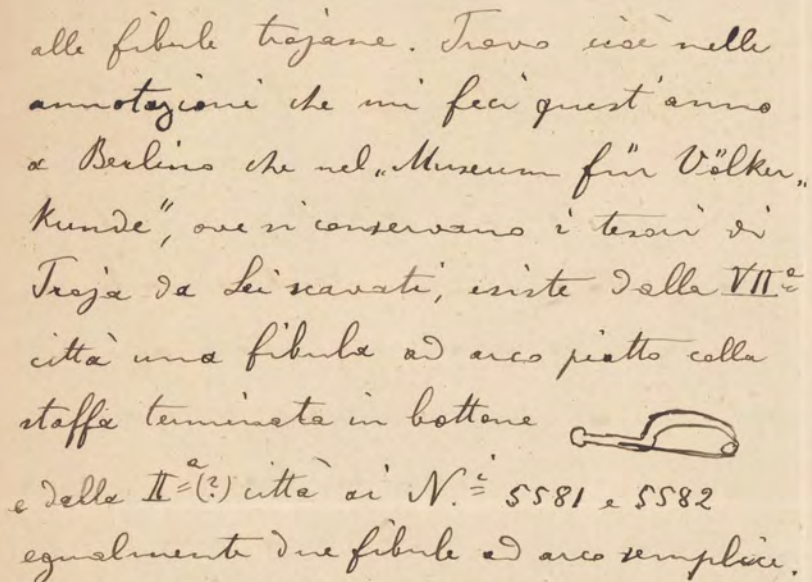 alle fibule trojane. Trovo cioè nelle
annotazioni che mi feci quest'anno
a Berlino che nel „Museum für Völker„
Kunde", ove si conservano i tesori di
Troja da Lei scavati, esiste dalla VIIª
città una fibula ad arco piatto colla
staffa terminata in bottone
e dalla IIª(?) città ai N.i 5581 e 5582
egualmente due fibule ad arco semplice.